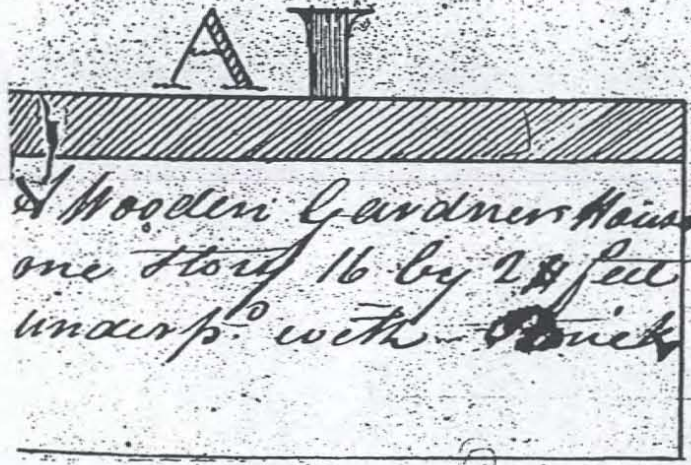 A I
A Wooden Gardners House
one Story 16 by feet
underp.ᵒ with Brick